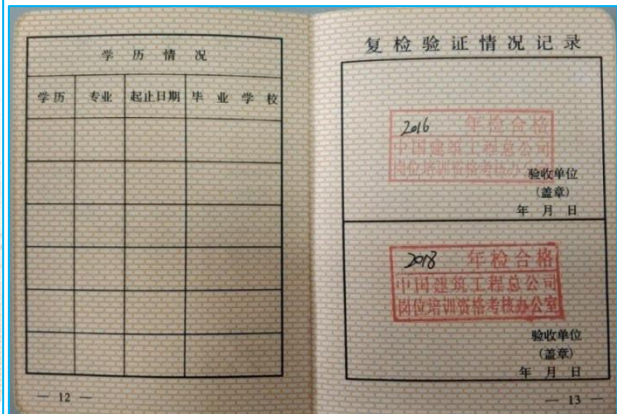 学历情况
学历 专业 起止日期 毕业学校
— 12 —
复检验证情况记录
2016 年检合格
中国建筑工程总公司
岗位培训资格考核办公室
验收单位
(盖章)
年 月 日
2018 年检合格
中国建筑工程总公司
岗位培训资格考核办公室
验收单位
(盖章)
年 月 日
— 13 —